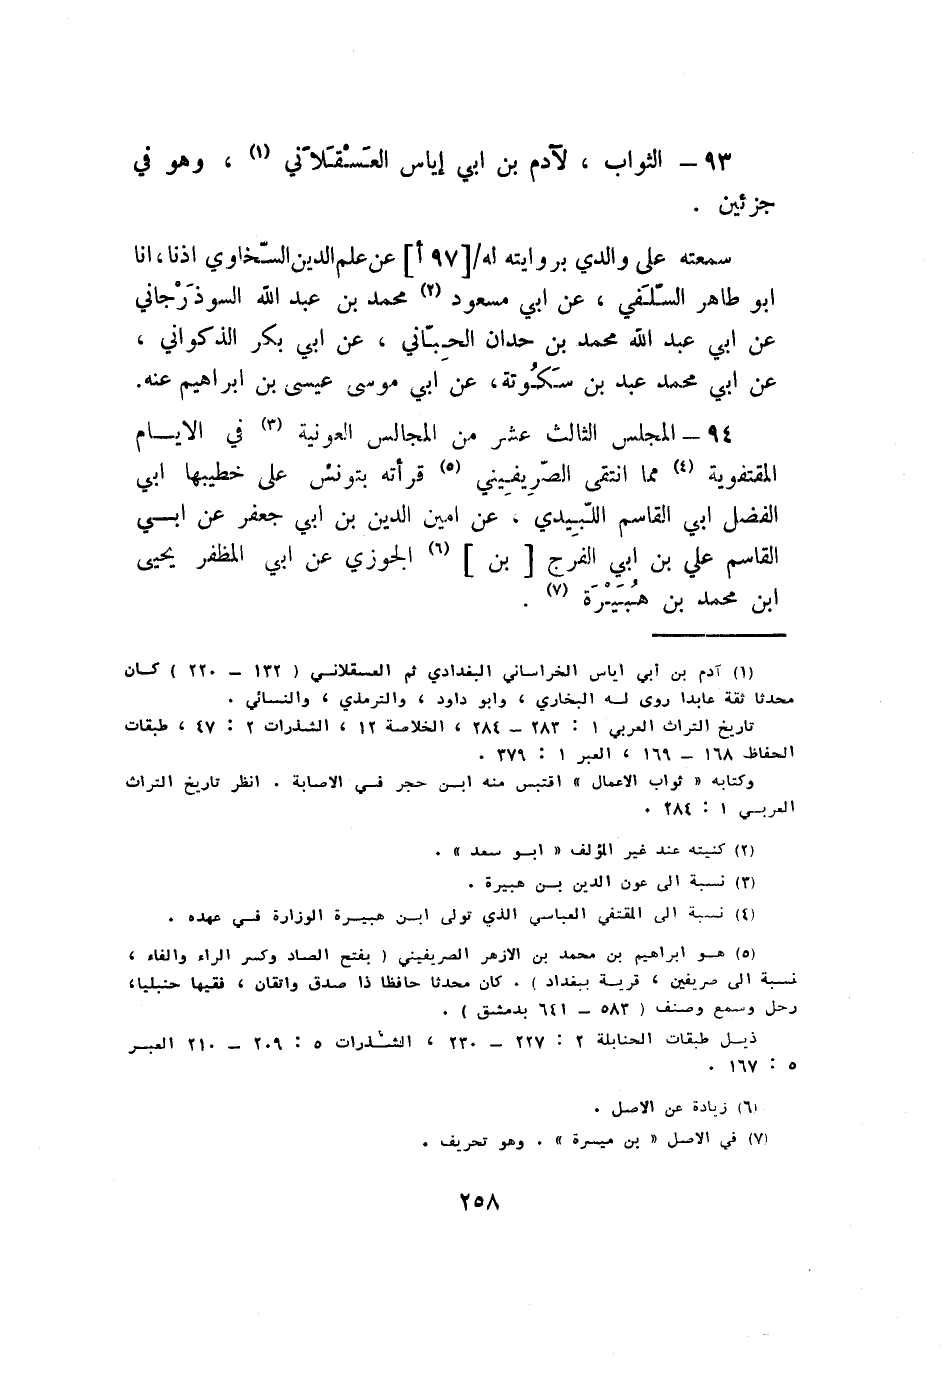 ٩٣ ــ الثواب ، لآدم بن ابي إياس العَسْقَلَاَني (١) ، وهو في
جزئين .
سمعته على والدي بروايته له/[٩٧ أ] عن علم الدين السّخاوي اذنا، انا
ابو طاهر السّلَفي ، عن ابي مسعود (٢) محمد بن عبد الله السوذَرْجاني
عن ابي عبد الله محمد بن حدان الحِبّاني ، عن ابي بكر الذكواني ،
عن ابي محمد عبد بن سَكُوتة، عن ابي موسى عيسى بن ابراهيم عنه.
٩٤ ــ المجلس الثالث عشر من المجالس العونية (٣) في الايــام
المقتفوية (٤) مما انتقى الصّرِيفِيني (٥) قرأته بتونسْ على خطيبها ابي
الفضل ابي القاسم اللّبِيدي ، عن امين الدين بن ابي جعفر عن ابــي
القاسم علي بن ابي الفرج [ بن ] (٦) الجوزي عن ابي المظفر يحيى
ابن محمد بن هُبَيْرَة (٧) .
(١) آدم بن أبي اياس الخراساني البغدادي ثم العسقلانـي ( ١٣٢ ــ ٢٢٠ ) كـان
محدثا ثقة عابدا روى لـه البخاري ، وابو داود ، والترمذي ، والنسائي .
تاريخ التراث العربي ١ : ٢٨٣ ــ ٢٨٤ ، الخلاصة ١٢ ، الشذرات ٢ : ٤٧ ، طبقات
الحفاظ ١٦٨ ــ ١٦٩ ، العبر ١ : ٣٧٩ .
وكتابه « ثواب الاعمال » اقتبس منه ابـن حجر فـي الاصابة . انظر تاريخ التراث
العربـي ١ : ٢٨٤ .
(٢) كنيته عند غير المؤلف « ابـو سعد » .
(٣) نسبة الى عون الدين بـن هبيرة .
(٤) نسبة الى المقتفي العباسي الذي تولى ابـن هبيـرة الوزارة فـي عهده .
(٥) هـو ابراهيم بن محمد بن الازهر الصريفيني ( بفتح الصاد وكسر الراء والفاء ،
نسبـة الى صريفين ، قريـة ببغداد ) . كان محدثا حافظا ذا صدق واتقان ، فقيها حنبليا،
رحل وسمع وصنف ( ٥٨٣ ــ ٦٤١ بدمشق ) .
ذيـل طبقات الحنابلة ٢ : ٢٢٧ ــ ٢٣٠ ، الشذرات ٥ : ٢٠٩ ــ ٢١٠ العبـر
٥ : ١٦٧ .
(٦) زيادة عن الاصل .
(٧) في الاصل « بن ميسرة » . وهو تحريف .
٢٥٨